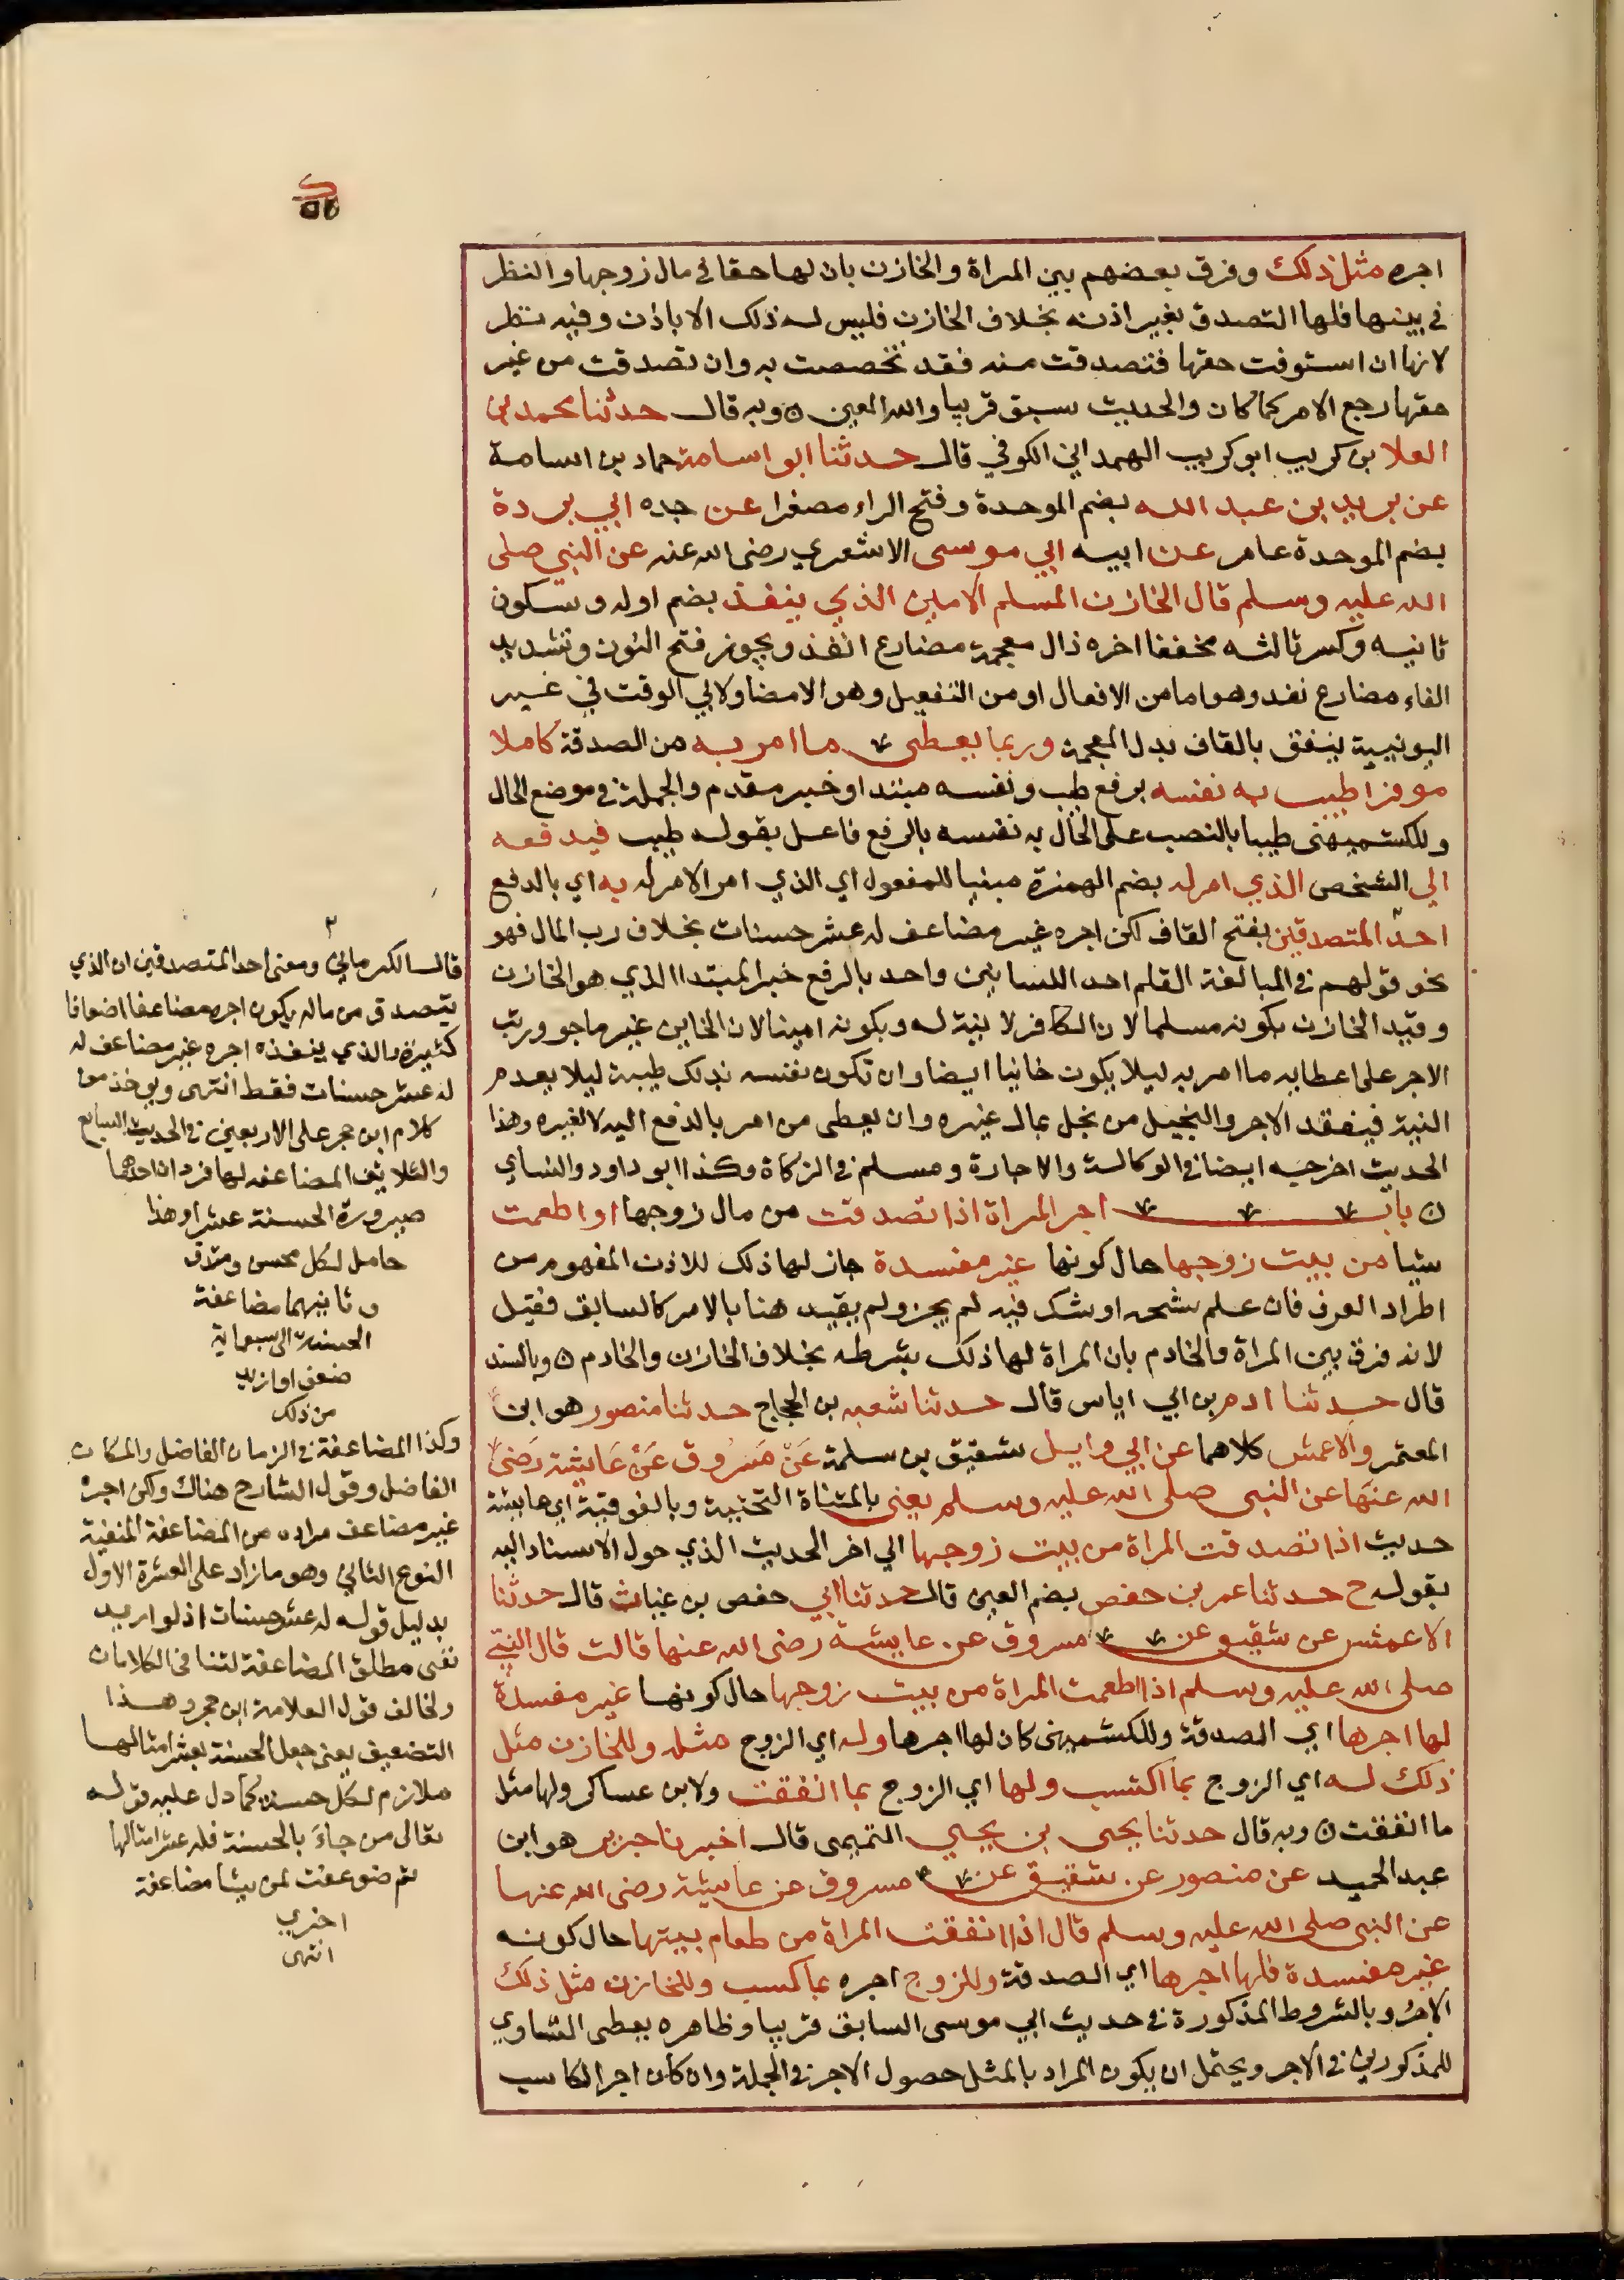 اجره مثل ذلك وفرق بعضهم بين المراة والخازن بان لها حقا في مال زوجها والنظر
في بيتها فلها التصدق بغير اذنه بخلاف الخازن فليس له ذلك الا باذن وفيه نظر
لانها ان استوفت حقها فتصدقت منه فقد تخصصت به وان تصدقت من غير
حقها رجع الامر كما كان والحديث سبق قريبا والله المعين ه وبه قال حدثنا محمد بن
العلا بن كريب ابو كريب الهمداني الكوفي قال حدثنا ابو اسامة حماد بن اسامة
عن بريد بن عبد الله بضم الموحدة وفتح الراء مصغرا عن جده ابي بردة
بضم الموحدة عامر عن ابيه ابي موسى الاشعري رضى الله عنه عن النبي صلى
الله عليه وسلم قال الخازن المسلم الامين الذي ينفذ بضم اوله وسكون
ثانيه وكسر ثالثه مخففا اخره ذال معجمة مضارع انفذ ويجوز فتح النون وتشديد
الفاء مضارع نفد وهو اما من الافعال او من التفعيل وهو الامضا ولابي الوقت في غير
اليونيية ينفق بالقاف بدل المعجمة وربما يعطى ما امر به من الصدقة كاملا
موفرا طيب به نفسه برفع طيب ونفسه مبتدا وخبر مقدم والجملة في موضع الحال
وللكشميهنى طيبا بالنصب على الحال به نفسه بالرفع فاعل بقوله طيب فيدفعه
الي الشخص الذي امر له بضم الهمزة مبنيا للمفعول اي الذي امر الامر له به اي بالدفع
احد المتصدقين بفتح القاف لكن اجره غير مضاعف له عشر حسنات بخلاف رب المال فهو
نحو قولهم في المبالغة القلم احد اللسانين واحد بالرفع خبر المبتدا الذي هو الخازن
وقيد الخازن بكونه مسلما لان الكافر لا نية له وبكونه امينا لان الخاين غير ماجور ورتب
الاجر على اعطايه ما امر به ليلا يكون خائنا ايضا وان تكون نفسه بذلك طيبة ليلا يعدم
النية فيفقد الاجر والبخيل من بخل بمال غيره وان يعطى من امر بالدفع اليه لا لغيره وهذا
الحديث اخرجه ايضا في الوكالة والاجارة ومسلم في الزكاة وكذا ابو داود والنساي
ه باب اجر المراة اذا تصدقت من مال زوجها او اطعمت
شيا من بيت زوجها حال كونها غير مفسدة جاز لها ذلك للاذن المفهوم من
اطراد العرف فان علم شحه او شك فيه لم يجز ولم يقيد هنا بالامر كالسابق فقيل
لانه فرق بين المراة والخادم بان المراة لها ذلك بشرطه بخلاف الخازن والخادم ه وبالسند
قال حدثنا ادم بن ابي اياس قال حدثنا شعبه بن الحجاج حدثنا منصور هو ابن
المعتمر والاعمش كلاهما عن ابي وايل شقيق بن سلمة عَنْ مَسْرُوق عَنْ عَايشة رَضىَ
الله عنهَا عن النبى صلى الله عليه وسلم يعنى بالمثناة التحتية وبالفوقية اي عايشة
حديث اذا تصدقت المراة من بيت زوجها الي اخر الحديث الذي حول الاسناد اليه
بقوله ح حدثنا عمر بن حفص بضم العين قال حدثنا ابي حفص بن غياث قال حدثنا
الاعمش عن شقيق عن مسروق عن عايشة رضى الله عنها قالت قال النبي
صلى الله عليه وسلم اذا اطعمت المراة من بيت زوجها حال كونها غير مفسدة
لها اجرها اي الصدقة وللكشميهنى كان لها اجرها وله اي الزوج مثله وللخازن مثل
ذلك له اي الزوج بما اكتسب ولها اي الزوج بما انفقت ولابن عساكر ولها مثل
ما انفقت ه وبه قال حدثنا يحيى بن يحيي التميمى قال اخبرنا جرير هو ابن
عبد الحميد عن منصور عن شقيق عن مسروق عن عايشة رضى الله عنها
عن النبى صلى الله عليه وسلم قال اذا انفقت المراة من طعام بيتها حال كونه
غير مفسدة فلها اجرها اي الصدقة وللزوج اجره بما كسب وللخازن مثل ذلك
الاجر وبالشروط المذكورة في حديث ابي موسى السابق قريبا وظاهره يعطى التساوي
للمذكورين في الاجر ويحتمل ان يكون المراد بالمثل حصول الاجر في الجملة وان كان اجر الكاسب
قال الكرماني ومعنى احد المتصدقين ان الذي
يتصدق من ماله يكون اجره مضاعفا اضعافا
كثيرة والذي ينفذه اجره غير مضاعف له
له عشر حسنات فقط انتهى ويوخذ من
كلام ابن حجر على الاربعين في الحديث السابع
والثلاثين المضاعفه لها فردان احدهما
صيرورة الحسنة عشرا وهذا
حاصل لكل محسن ومتق
وثانيهما مضاعفة
الحسنة الى سبعماية
ضعف او ازيد
من ذلك
وكذا المضاعفة في الزمان الفاضل والمكان
الفاضل وقول الشارح هناك ولكن اجره
غير مضاعف مراده من المضاعفة المنفية
النوع الثاني وهو ما زاد على العشرة الاول
بدليل قوله له عشر حسنات اذ لو اريد
نفى مطلق المضاعفة لتنافى الكلامان
ولخالف قول العلامة ابن حجر وهذا
التضعيف يعنى جعل الحسنة بعشر امثالها
ملازم لكل حسنة كما دل عليه قوله
تعالى من جاءَ بالحسنة فله عشر امثالها
ثم ضوعفت لمن يشا مضاعفة
اخرى
انتهى